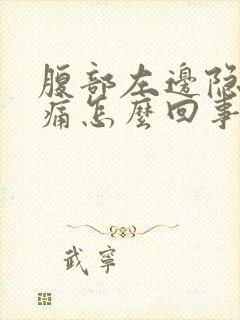 腹部左邊隐
痛怎麼回事
武寧